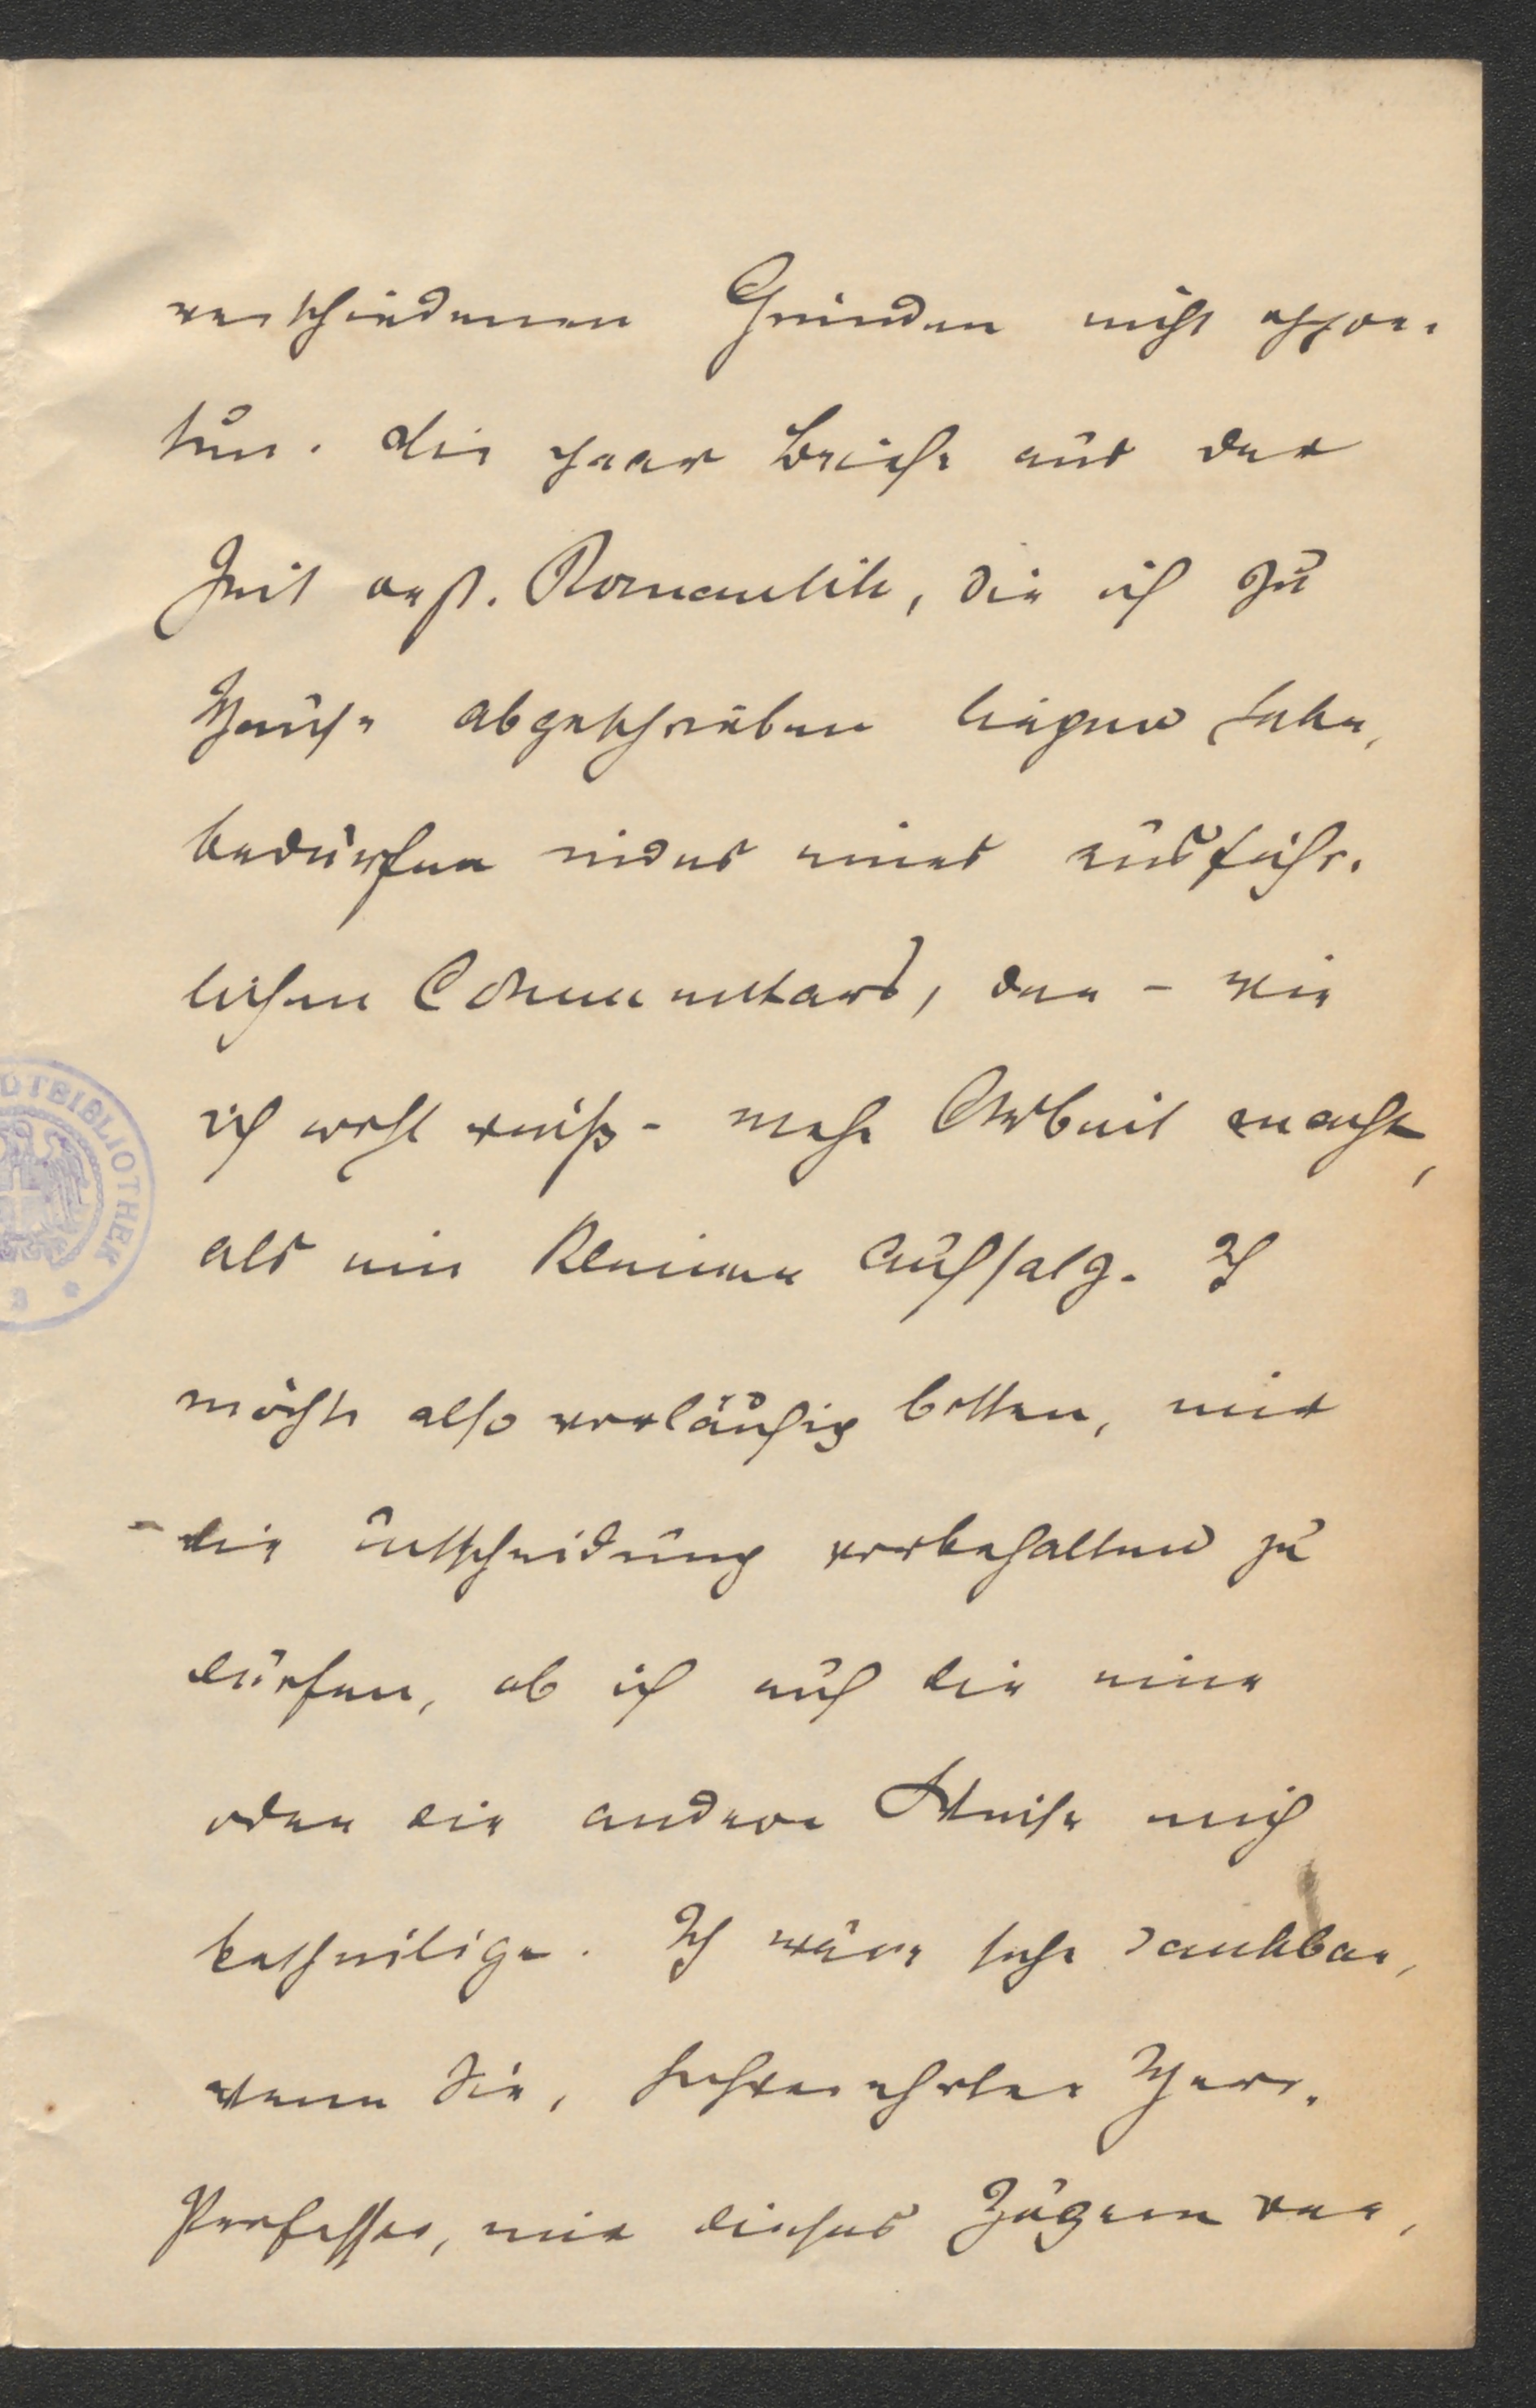 verschiedenen Gründen nicht oppor-
tun. Die paar Briefe aus der
Zeit östr. Romantik, die ich zu
Hause abgeschrieben liegen habe,
bedürfen indes eines ausführ-
lichen Commentars, der – wie
ich wohl weiß – mehr Arbeit macht,
als ein kleiner Aufsatz. Ich
möchte also vorläufig bitten, mir
die Entscheidung vorbehalten zu
dürfen, ob ich auf die eine
oder die andere Weise mich
betheilige. Ich wäre sehr dankbar,
wenn Sie, hochverehrter Herr
Professor, mir dieses Zögern ver-
DTBIBLIOTHEK